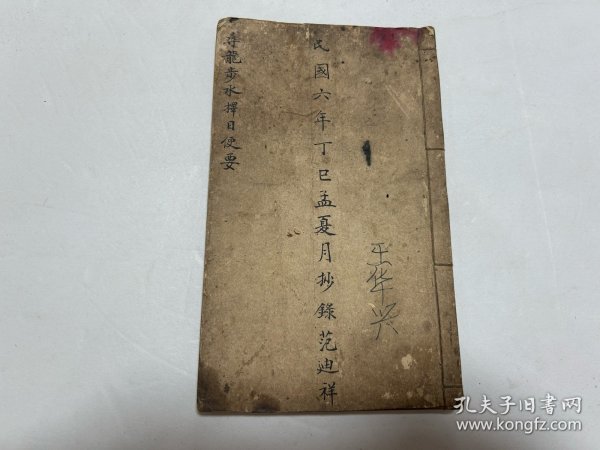 尋龍步水擇日便要
民國六年丁巳孟夏月抄錄范迪祥
王华兴
孔夫子旧书网
www.kongfz.com